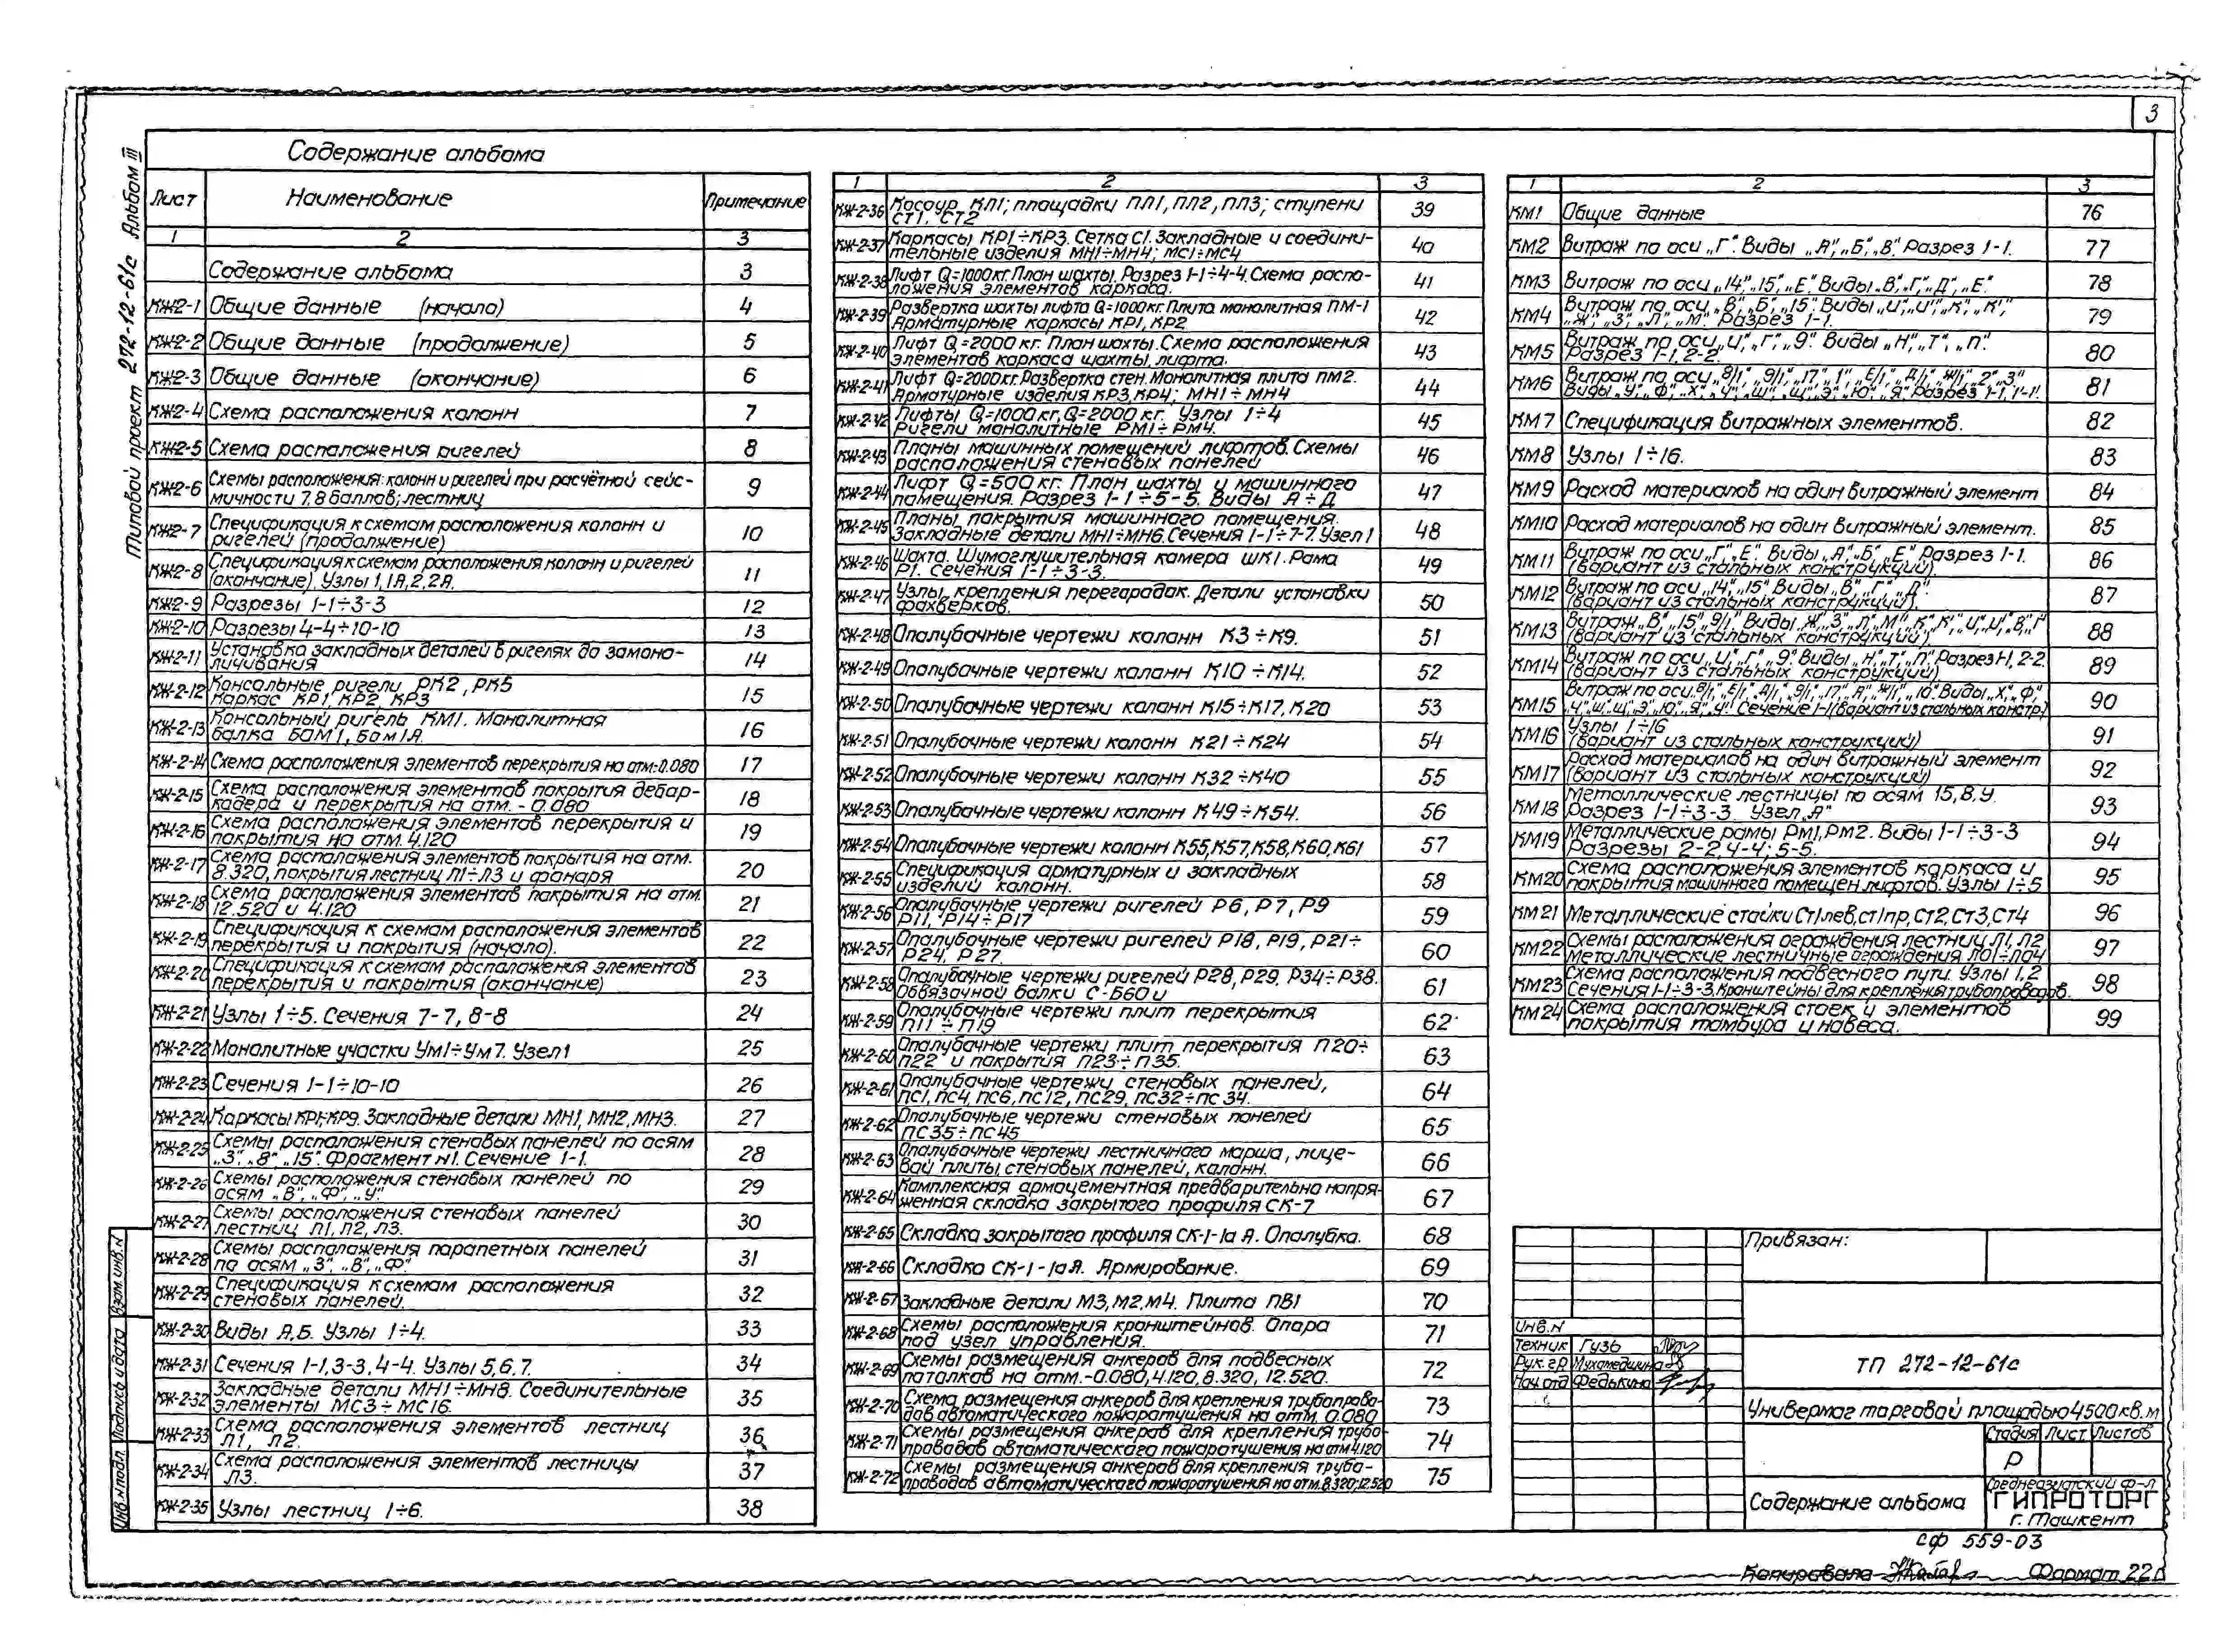 3
Типовой проект 272-12-61с Альбом III
Содержание альбома
Лист Наименование Примечание
1 2 3
Содержание альбома 3
КЖ2-1 Общие данные (начало) 4
КЖ2-2 Общие данные (продолжение) 5
КЖ2-3 Общие данные (окончание) 6
КЖ2-4 Схема расположения колонн 7
КЖ2-5 Схема расположения ригелей 8
КЖ2-6 Схемы расположения: колонн и ригелей при расчётной сейс-
мичности 7,8 баллов; лестниц 9
КЖ2-7 Спецификация к схемам расположения колонн и
ригелей (продолжение) 10
КЖ2-8 Спецификация к схемам расположения колонн и ригелей
(окончание). Узлы 1, 1А, 2, 2А. 11
КЖ2-9 Разрезы 1-1÷3-3 12
КЖ2-10 Разрезы 4-4÷10-10 13
КЖ2-11 Установка закладных деталей в ригелях до замоно-
личивания 14
КЖ-2-12 Консольные ригели РК2, РК5
Каркас КР1, КР2, КР3 15
КЖ-2-13 Консольный ригель КМ1. Монолитная
балка БОМ1, Бом1А. 16
КЖ-2-14 Схема расположения элементов перекрытия на отм.-0.080 17
КЖ-2-15 Схема расположения элементов покрытия дебар-
кадера и перекрытия на отм. - 0.080 18
КЖ-2-16 Схема расположения элементов перекрытия и
покрытия на отм. 4.120 19
КЖ-2-17 Схема расположения элементов покрытия на отм.
8.320, покрытия лестниц Л1÷Л3 и фонаря 20
КЖ-2-18 Схема расположения элементов покрытия на отм.
12.520 и 4.120 21
КЖ-2-19 Спецификация к схемам расположения элементов
перекрытия и покрытия (начало). 22
КЖ-2-20 Спецификация к схемам расположения элементов
перекрытия и покрытия (окончание) 23
КЖ-2-21 Узлы 1÷5. Сечения 7-7, 8-8 24
КЖ-2-22 Монолитные участки Ум1÷Ум7. Узел 1 25
КЖ-2-23 Сечения 1-1÷10-10 26
КЖ-2-24 Каркасы КР1÷КР9. Закладные детали МН1, МН2, МН3. 27
КЖ-2-25 Схемы расположения стеновых панелей по осям
„3", „8", „15". Фрагмент N1. Сечение 1-1. 28
КЖ-2-26 Схемы расположения стеновых панелей по
осям „В", „Ф", „У". 29
КЖ-2-27 Схемы расположения стеновых панелей
лестниц Л1, Л2, Л3. 30
КЖ-2-28 Схемы расположения парапетных панелей
по осям „3", „В", „Ф". 31
КЖ-2-29 Спецификация к схемам расположения
стеновых панелей. 32
КЖ-2-30 Виды А, Б. Узлы 1÷4. 33
КЖ-2-31 Сечения 1-1, 3-3, 4-4. Узлы 5, 6, 7. 34
КЖ-2-32 Закладные детали МН1÷МН8. Соединительные
элементы МС3÷МС16. 35
КЖ-2-33 Схема расположения элементов лестниц
Л1, Л2. 36
КЖ-2-34 Схема расположения элементов лестницы
Л3. 37
КЖ-2-35 Узлы лестниц 1÷6. 38
1 2 3
КЖ-2-36 Косоур КЛ1; площадки ПЛ1, ПЛ2, ПЛ3; ступени
СТ1, СТ2 39
КЖ-2-37 Каркасы КР1÷КР3. Сетка С1. Закладные и соедини-
тельные изделия МН1÷МН4; МС1÷МС4 40
КЖ-2-38 Лифт Q=1000кг. План шахты. Разрез 1-1÷4-4. Схема распо-
ложения элементов каркаса. 41
КЖ-2-39 Развертка шахты лифта Q=1000кг. Плита монолитная ПМ-1
Арматурные каркасы КР1, КР2 42
КЖ-2-40 Лифт Q=2000 кг. План шахты. Схема расположения
элементов каркаса шахты, лифта. 43
КЖ-2-41 Лифт Q=2000кг. Развертка стен. Монолитная плита ПМ2.
Арматурные изделия КР3, КР4; МН1÷МН4 44
КЖ-2-42 Лифты Q=1000кг, Q=2000 кг. Узлы 1÷4
Ригели монолитные РМ1÷РМ4. 45
КЖ-2-43 Планы машинных помещений лифтов. Схемы
расположения стеновых панелей 46
КЖ-2-44 Лифт Q=500 кг. План шахты и машинного
помещения. Разрез 1-1÷5-5. Виды А÷Д 47
КЖ-2-45 Планы покрытия машинного помещения.
Закладные детали МН1÷МН6. Сечения 1-1÷7-7. Узел 1 48
КЖ-2-46 Шахта. Шумоглушительная камера ШК1. Рама
Р1. Сечения 1-1÷3-3. 49
КЖ-2-47 Узлы крепления перегородок. Детали установки
фахверков. 50
КЖ-2-48 Опалубочные чертежи колонн К3÷К9. 51
КЖ-2-49 Опалубочные чертежи колонн К10÷К14. 52
КЖ-2-50 Опалубочные чертежи колонн К15÷К17, К20 53
КЖ-2-51 Опалубочные чертежи колонн К21÷К24 54
КЖ-2-52 Опалубочные чертежи колонн К32÷К40 55
КЖ-2-53 Опалубочные чертежи колонн К49÷К54. 56
КЖ-2-54 Опалубочные чертежи колонн К55, К57, К58, К60, К61 57
КЖ-2-55 Спецификация арматурных и закладных
изделий колонн. 58
КЖ-2-56 Опалубочные чертежи ригелей Р6, Р7, Р9
Р11, Р14÷Р17 59
КЖ-2-57 Опалубочные чертежи ригелей Р18, Р19, Р21÷
Р24, Р27. 60
КЖ-2-58 Опалубочные чертежи ригелей Р28, Р29, Р34÷Р38.
Обвязочной балки С-Б60и 61
КЖ-2-59 Опалубочные чертежи плит перекрытия
П11÷П19 62
КЖ-2-60 Опалубочные чертежи плит перекрытия П20÷
П22 и покрытия П23÷П35. 63
КЖ-2-61 Опалубочные чертежи стеновых панелей,
ПС1, ПС4, ПС6, ПС12, ПС29, ПС32÷ПС34. 64
КЖ-2-62 Опалубочные чертежи стеновых понелей
ПС35÷ПС45 65
КЖ-2-63 Опалубочные чертежи лестничного марша, лице-
вой плиты, стеновых панелей, колонн. 66
КЖ-2-64 Комплексная армоцементная предварительно напря-
женная складка закрытого профиля СК-7 67
КЖ-2-65 Складка закрытого профиля СК-1-1а А. Опалубка. 68
КЖ-2-66 Складка СК-1-1аА. Армирование. 69
КЖ-2-67 Закладные детали М3, М2, М4. Плита ПВ1 70
КЖ-2-68 Схемы расположения кронштейнов. Опора
под узел управления. 71
КЖ-2-69 Схемы размещения анкеров для подвесных
потолков на отм.-0.080, 4.120, 8.320, 12.520. 72
КЖ-2-70 Схема размещения анкеров для крепления трубопрово-
дов автоматического пожаротушения на отм. 0.080 73
КЖ-2-71 Схемы размещения анкеров для крепления трубо-
проводов автоматического пожаротушения на отм 4.120 74
КЖ-2-72 Схемы размещения анкеров для крепления трубо-
проводов автоматического пожаротушения на отм. 8.320; 12.520 75
1 2 3
КМ1 Общие данные 76
КМ2 Витраж по оси „Г". Виды „А", „Б", „В". Разрез 1-1. 77
КМ3 Витраж по оси „14", „15", „Е". Виды „В", „Г", „Д", „Е". 78
КМ4 Витраж по оси „В", „Б", „15". Виды „И", „И'", „К", „К'",
„Ж", „З", „Л", „М". Разрез 1-1. 79
КМ5 Витраж по оси „И", „Г", „9". Виды „Н", „Т", „П".
Разрез 1-1, 2-2. 80
КМ6 Витраж по оси „8/1", „9/1", „17", „1", „Е/1", „Д/1", „Ж/1", „2", „3"
Виды „У", „Ф", „Х", „Ч", „Ш", „Щ", „Э", „Ю", „Я". Разрез 1-1, 1-1. 81
КМ7 Спецификация витражных элементов. 82
КМ8 Узлы 1÷16. 83
КМ9 Расход материалов на один витражный элемент 84
КМ10 Расход материалов на один витражный элемент. 85
КМ11 Витраж по оси „Г", „Е". Виды „А", „Б", „Е" Разрез 1-1.
(вариант из стальных конструкций). 86
КМ12 Витраж по оси „14", „15" Виды „В", „Г", „Д".
(вариант из стальных конструкций). 87
КМ13 Витраж „В", „15", „9/1" Виды „Ж", „З", „Л", „М", „К", „К'", „И", „И'", „В", „Г"
(вариант из стальных конструкций) 88
КМ14 Витраж по оси „И", „Г", „9". Виды „Н", „Т", „П". Разрез 1-1, 2-2.
(вариант из стальных конструкций) 89
КМ15 Витраж по оси „8/1", „Е/1", „Д/1", „9/1", „17", „Я", „Ж/1", „10". Виды „Х", „Ф",
„Ч", „Ш", „Щ", „Э", „Ю", „Я", „У". Сечение 1-1 (вариант из стальных констр.) 90
КМ16 Узлы 1÷16
(вариант из стальных конструкций) 91
КМ17 Расход материалов на один витражный элемент
(вариант из стальных конструкций) 92
КМ18 Металлические лестницы по осям 15, 8, У.
Разрез 1-1÷3-3 Узел „А" 93
КМ19 Металлические рамы Рм1, Рм2. Виды 1-1÷3-3
Разрезы 2-2, 4-4; 5-5. 94
КМ20 Схема расположения элементов каркаса и
покрытия машинного помещен. лифтов. Узлы 1÷5 95
КМ21 Металлические стойки Ст1лев, ст1пр, Ст2, Ст3, Ст4 96
КМ22 Схемы расположения ограждения лестниц Л1, Л2
Металлические лестничные ограждения ЛО1÷ЛО4 97
КМ23 Схема расположения подвесного пути. Узлы 1, 2
Сечения 1-1÷3-3. Кронштейны для крепления трубопроводов. 98
КМ24 Схема расположения стоек и элементов
покрытия тамбура и навеса. 99
Взам. инв. N
Подпись и дата
Инв. N подл.
Привязан:
Инв. N
Техник Гузь
Рук. гр Мухамедшина
Нач. отд Федькина
ТП 272-12-61с
Универмаг торговой площадью 4500 кв. м
Стадия Лист Листов
Р
Содержание альбома
Среднеазиатский ф-л
ГИПРОТОРГ
г. Ташкент
СФ 559-03
Копировала
Формат 22г